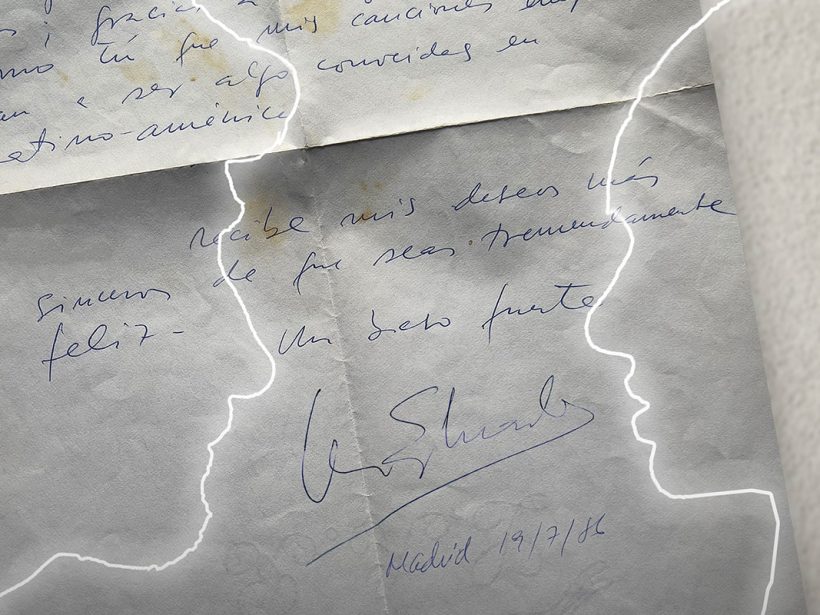 ¡ gracias a
omo tú que mis canciones emp
an a ser algo conocidas en
atino-américa
recibe mis deseos más
sinceros de que seas tremendamente
feliz- Un beso fuerte
Madrid 19/7/86